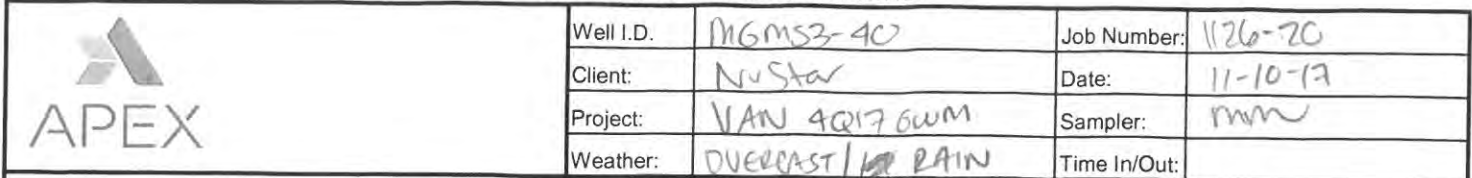 APEX
Well I.D. MGMS3-40 Job Number: 1126-20
Client: NuStar Date: 11-10-17
Project: VAN 4Q17 GWM Sampler: mm
Weather: OVERCAST / RAIN Time In/Out: